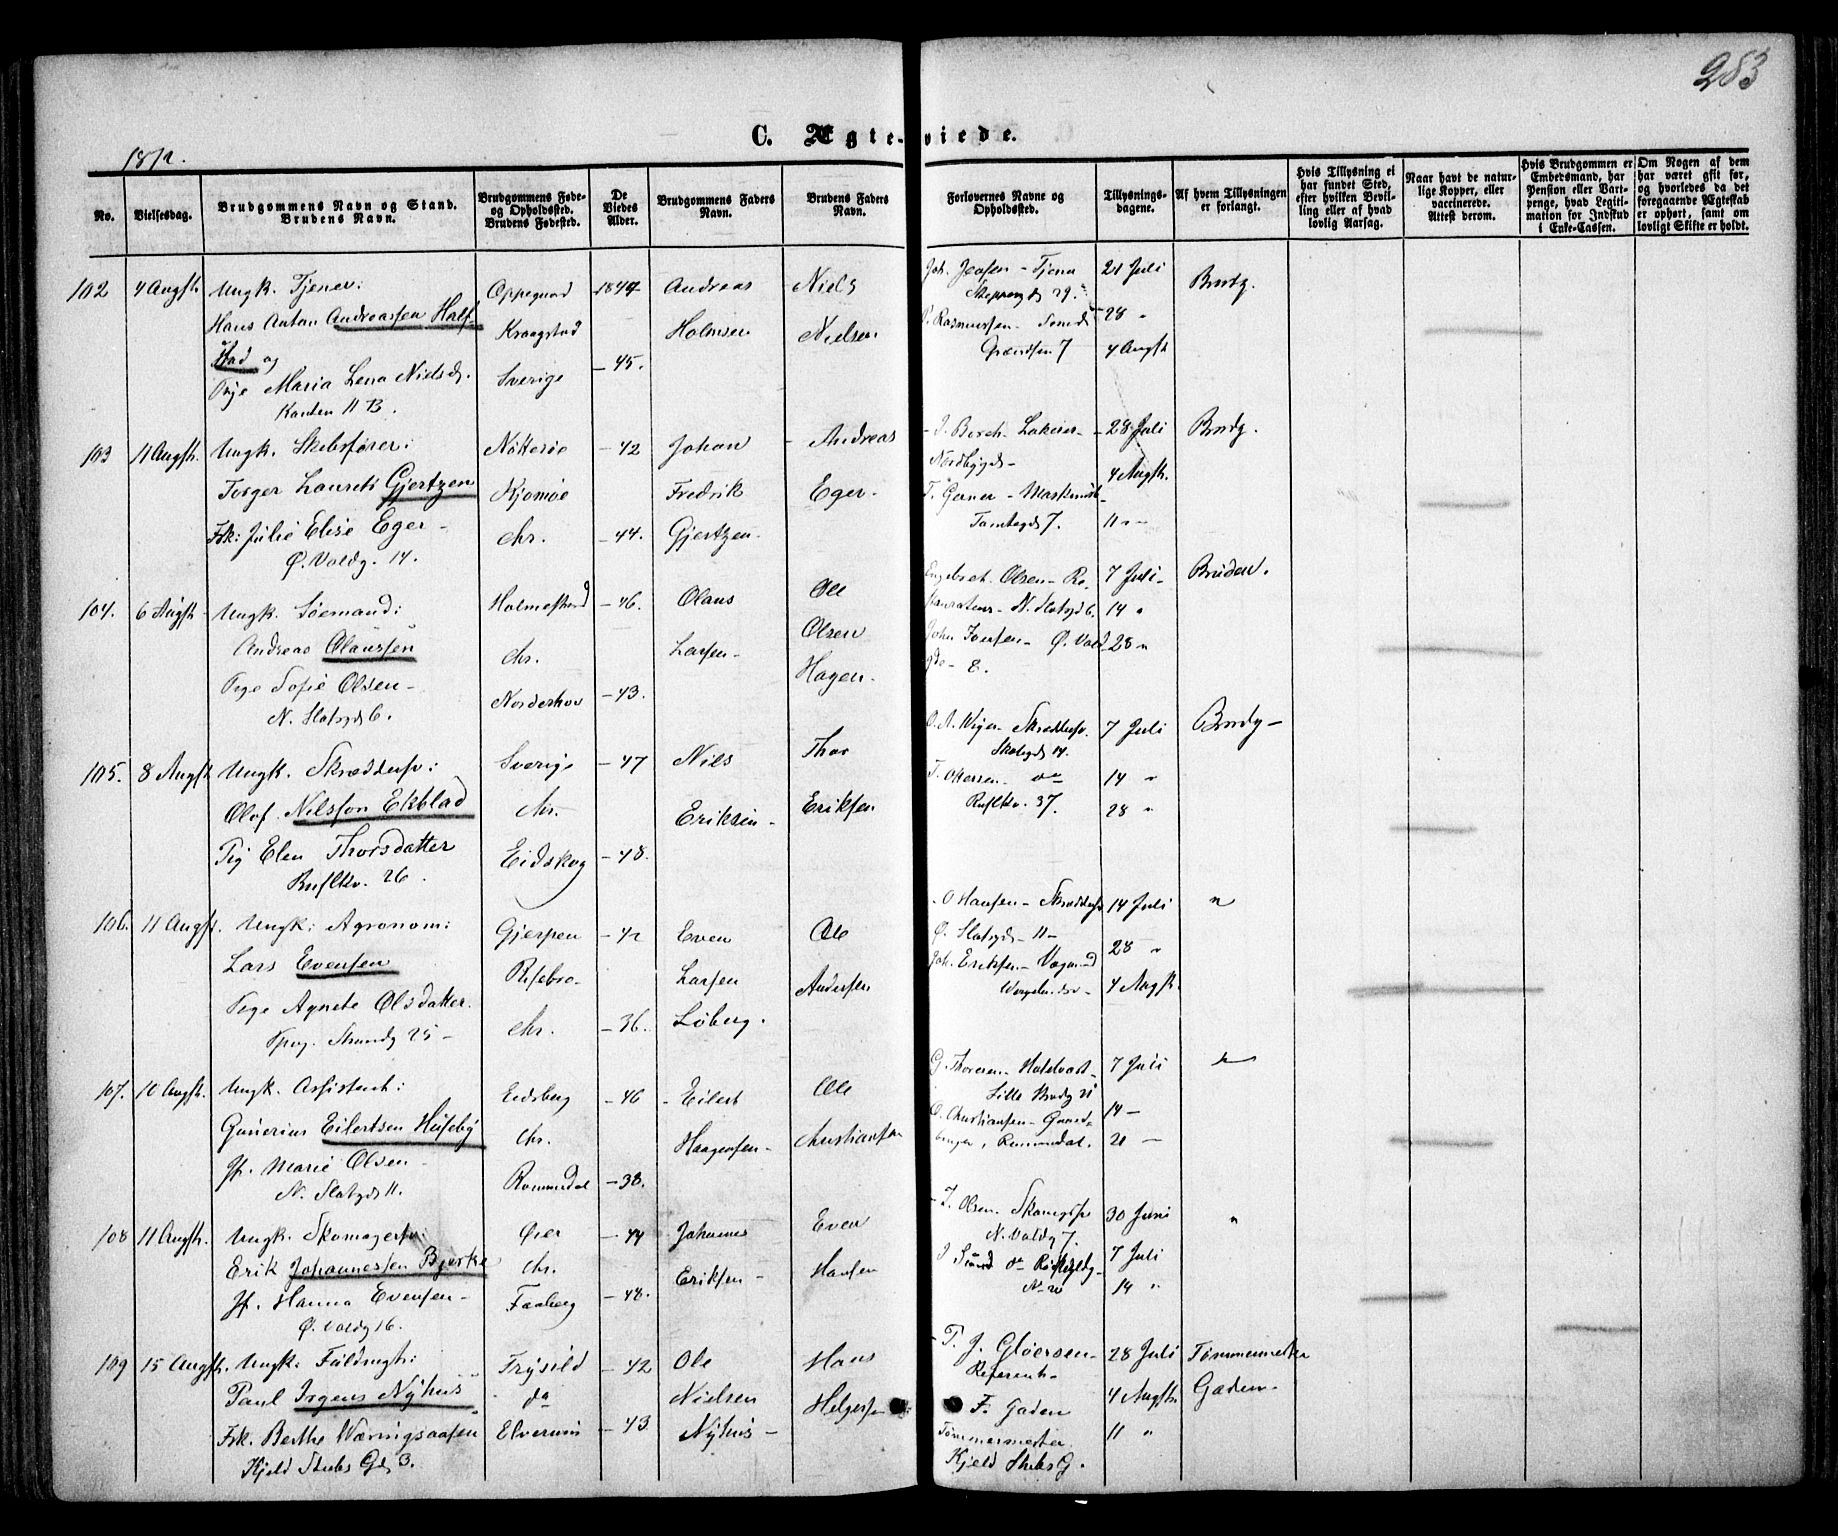 283
C. Ægte-viede.
1872.
No.
Vielsesdag.
Brudgommens Navn og Stand.
Brudens Navn.
Brudgommens Føde-
og Opholdssted.
Brudens Fødested.
De
Viedes
Alder.
Brudgommens Faders
Navn.
Brudens Faders
Navn.
Forlovernes Navne og
Opholdssted.
Tillysnings-
dagene.
Af hvem Tillysningen
er forlangt.
Hvis Tillysning ei
har fundet Sted,
efter hvilken Bevil-
ling eller af hvad
lovlig Aarsag.
Naar havt de natur-
lige Kopper, eller
vaccinerede.
Attest derom.
Hvis Brudgommen er
Embedsmand, har
Pension eller Vart-
penge, hvad Legiti-
mation for Indskud
i Enke-Cassen.
Om Nogen af dem
har været gift før,
og hvorledes da det
foregaaende Ægteskab
er ophørt, samt om
lovligt Skifte er holdt.
102 4 Augst. Ungk. Tjener: Oppegaad 1844 Andreas Niels Joh. Jensen - Tjener 21 Juli Brudg.
Hans Anton Andreassen Half- Kraagstad Holmsen Nielsen Rasmussen 28 "
stad og Grændsen 7 4 Augst
Pige Maria Lena Nielsd. Sverige - 45.
Kanten 11 B.
103 11 Augst. Ungk. Skibsfører: Nøtterøe - 42 Johan - Andreas Lakeier - 28 Juli Brudg.
Torger Laurets Gjertzen Kjømøe Fredrik Eger. T. Gerner - Maskinist 4 Augst.
Frk: Julie Elise Eger - Chr. - 44. Gjertzen. Tomtegd 7. 11 -
Ø. Voldg. 14.
104. 6 Augst Ungk. Søemand: Holmestrand - 46. Olaus Ole Engebret Olsen - Re- 7 Juli - Bruden.
Andreas Olaussen Chr. Larsen - Olsen N. Slotsgd 6. 14 "
Pige Sofie Olsen - Norderhov - 43. Hagen. John Iversen - Ø. Vold 28 "
N. Slotsgd 6. gde - 8.
105. 8 Augst Ungk. Skrædersv: Sverige - 47 Niels Thor Skræddersv. 7 Juli Brudg -
Olof Nilsson Ekblad Chr. Eriksen - Eriksen 14 "
Pig Elen Thorsdatter Eidskog - 48. 37. 28 "
26.
106. 11 Augst. Ungk: Agronom: Gjerpen - 42 Even Ole O Hansen - Skræddersv 14 Juli "
Lars Evensen Risebro. Larsen Andersen Ø. Slotsgd - 11 - 28 "
Pige Agnete Olsdatter. Chr. - 36. Løberg. Joh. Eriksen - Vognmd 4 Augst.
Strandg 25 -
107. 10 Augst. Ungk. Assistent: Eidsberg - 46 - Eilert Ole G. Thoresen 7 Juli "
Gunerius Eilertsen Huseby Chr. Haagensen - Christiansen Lille Strandg 21 14 -
Jf. Marie Olsen - Romsdal - 38. O. Christiansen - Gaard- 21 -
N. Slotsgd 11. bruger, Romsdal.
108 11 Augst. Ungk. Skomagersv: Øier - 44 Johannes Even J. Olsen 30 Juni "
Erik Johannessen Bjerke Chr. Eriksen - Hansen N. Voldg 7. 7 Juli
Jf. Hanna Evensen - Faaberg - 48. 14 "
Ø. Voldg 16.
109 15 Augst. Ungk. Fuldmgt: Trysild - 42 Ole Hans - T. J. Gløersen - 28 Juli Tømmermester
Paul Irgens Nyhus do Nielsen Helgesen Referent - 4 Augst. Gaden.
Frk. Berthe Wærningsaasen Elverum - 43 Nyhus - F. Gaden 11 "
Kjeld Stubs Gd 3. Tømmermester
Kjeld Stubs G.